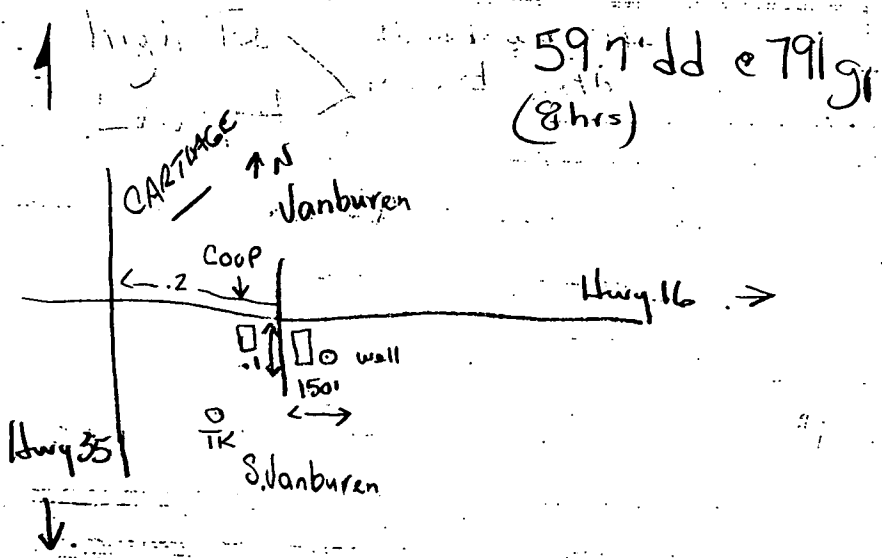 59.7' dd @ 791 gr
(8hrs)
CARTHAGE
N
Vanburen
COOP
.2
Hwy.16
.1
well
150'
TK
Hwy 35
S.Vanburen